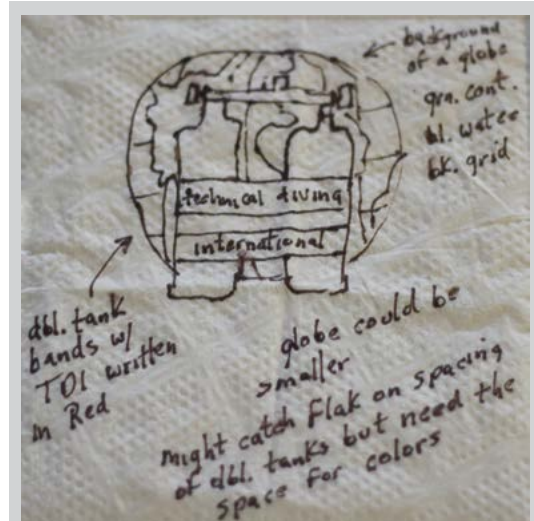 background
of a globe
grn. cont.
bl. water
bk. grid
technical diving
international
dbl. tank
bands w/
TDI written
in Red
globe could be
smaller
might catch flak on spacing
of dbl. tanks but need the
space for colors